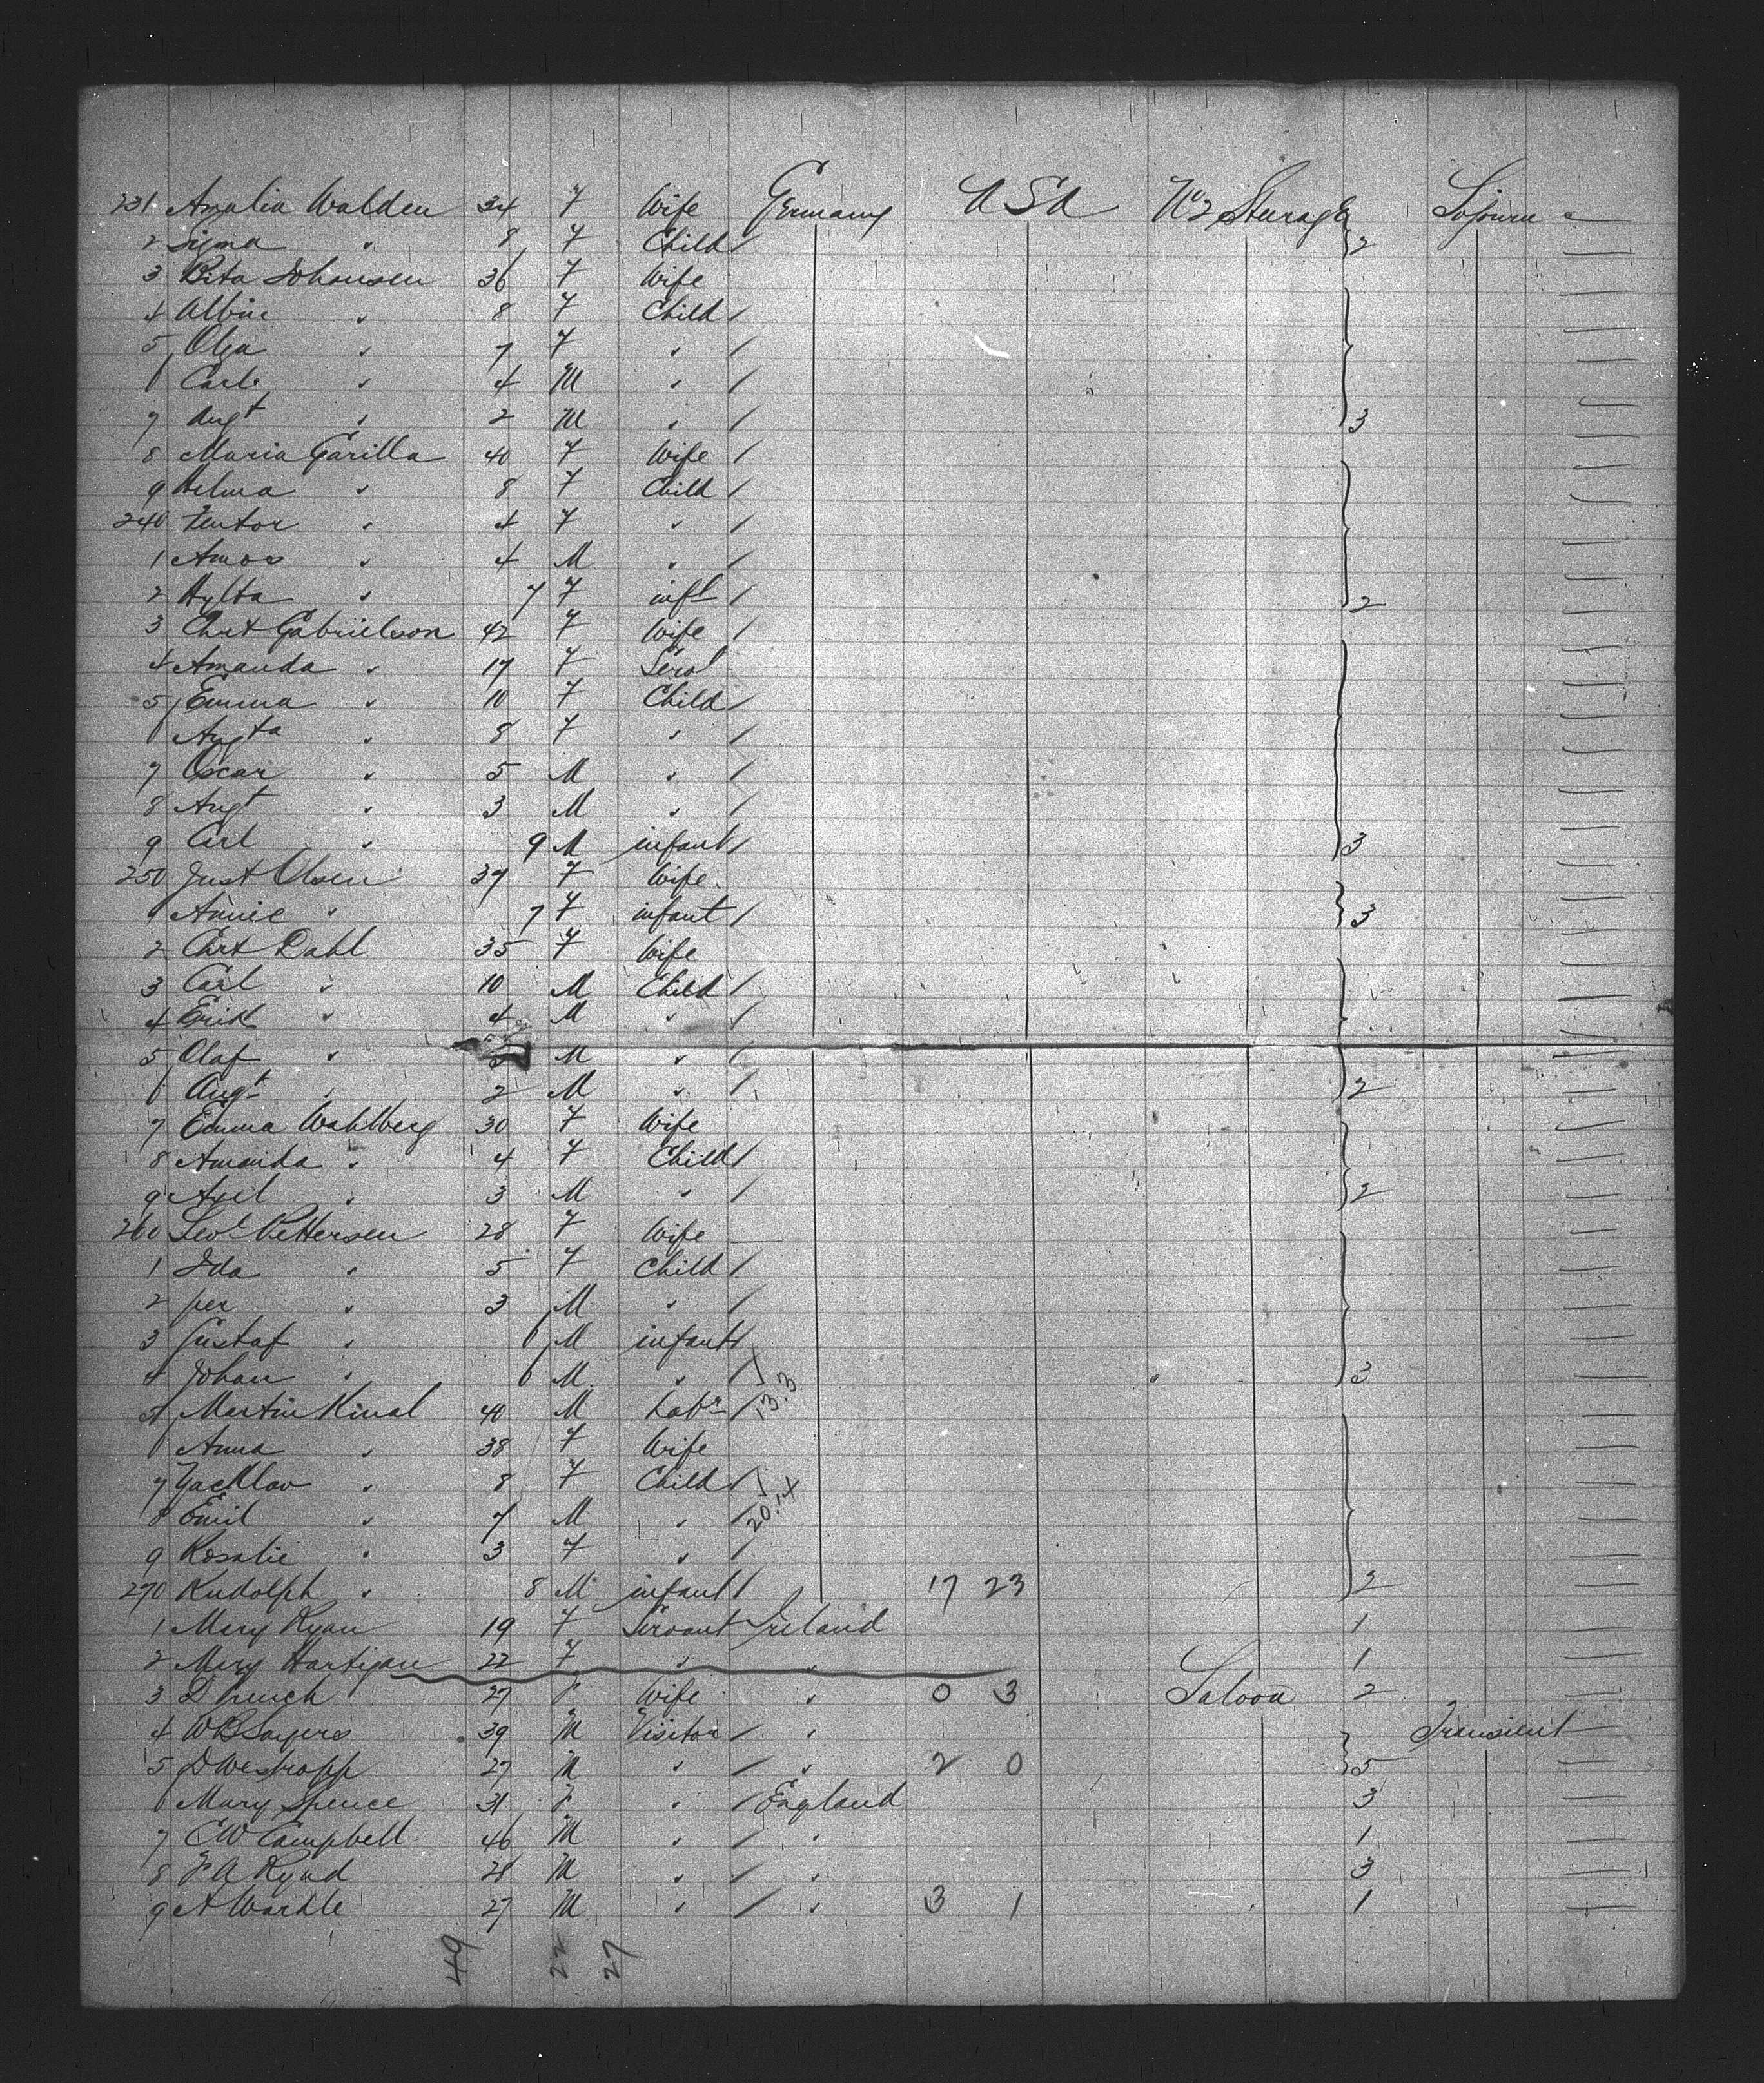 231 Amalia Walden 34 F Wife Germany USA No 2 Sturage Sojourn
2 Signa " 8 F Child / 2
3 Brita Johansen 36 F Wife
4 Albin " 8 F Child /
5 Olga " 7 F " /
6 Carl " 4 M " /
7 Augt " 2 M " / 3
8 Maria Garilla 40 F Wife /
9 Helma " 8 F Child /
240 " 4 F " /
1 Amos " 4 M " /
2 Hylta " 7 F inft / 2
3 Chrt Gabrielson 42 F Wife /
4 Amanda " 17 F Servt
5 Emma " 10 F Child /
6 Augta " 8 F " /
7 Oscar " 5 M " /
8 Augt " 3 M " /
9 Carl " 9 M infant / 3
250 Just Olsen 39 F Wife
1 Annie " 7 F infant / 3
2 Chrt Dahl 35 F Wife
3 Carl " 10 M Child /
4 Erik " 4 M " /
5 Olaf " 3 M " /
6 Augt " 2 M " / 2
7 Emma Wahlberg 30 F Wife
8 Amanda " 4 F Child /
9 Axil " 3 M " / 2
260 Pettersen 28 F Wife
1 Ida " 5 F Child /
2 Per " 3 M " /
3 Gustaf " 6 M infant /
4 Johan " 6 M " / 3
5 Martin Kinal 40 M Labr / 13.3
6 Anna " 38 F Wife
7 Yacklav " 8 F Child /
8 Emil " 7 M " / 20.14
9 Rosalie " 3 F " /
270 Rudolph " 8 M infant / 17 23 2
1 Mary Ryan 19 F Servant Ireland 1
2 Mary Hartigan 22 F " " 1
3 D French 27 F Wife " 0 3 Saloon 2
4 WB Sayers 39 M Visitor / " Transient
5 D Westropp 27 M " / " 2 0 5
6 Mary Spence 31 F " / England 3
7 CW Campbell 46 M " / " 1
8 Rynd 28 M " / " 3
9 A Wardle 27 M " / " 3 1 1
49 22 27